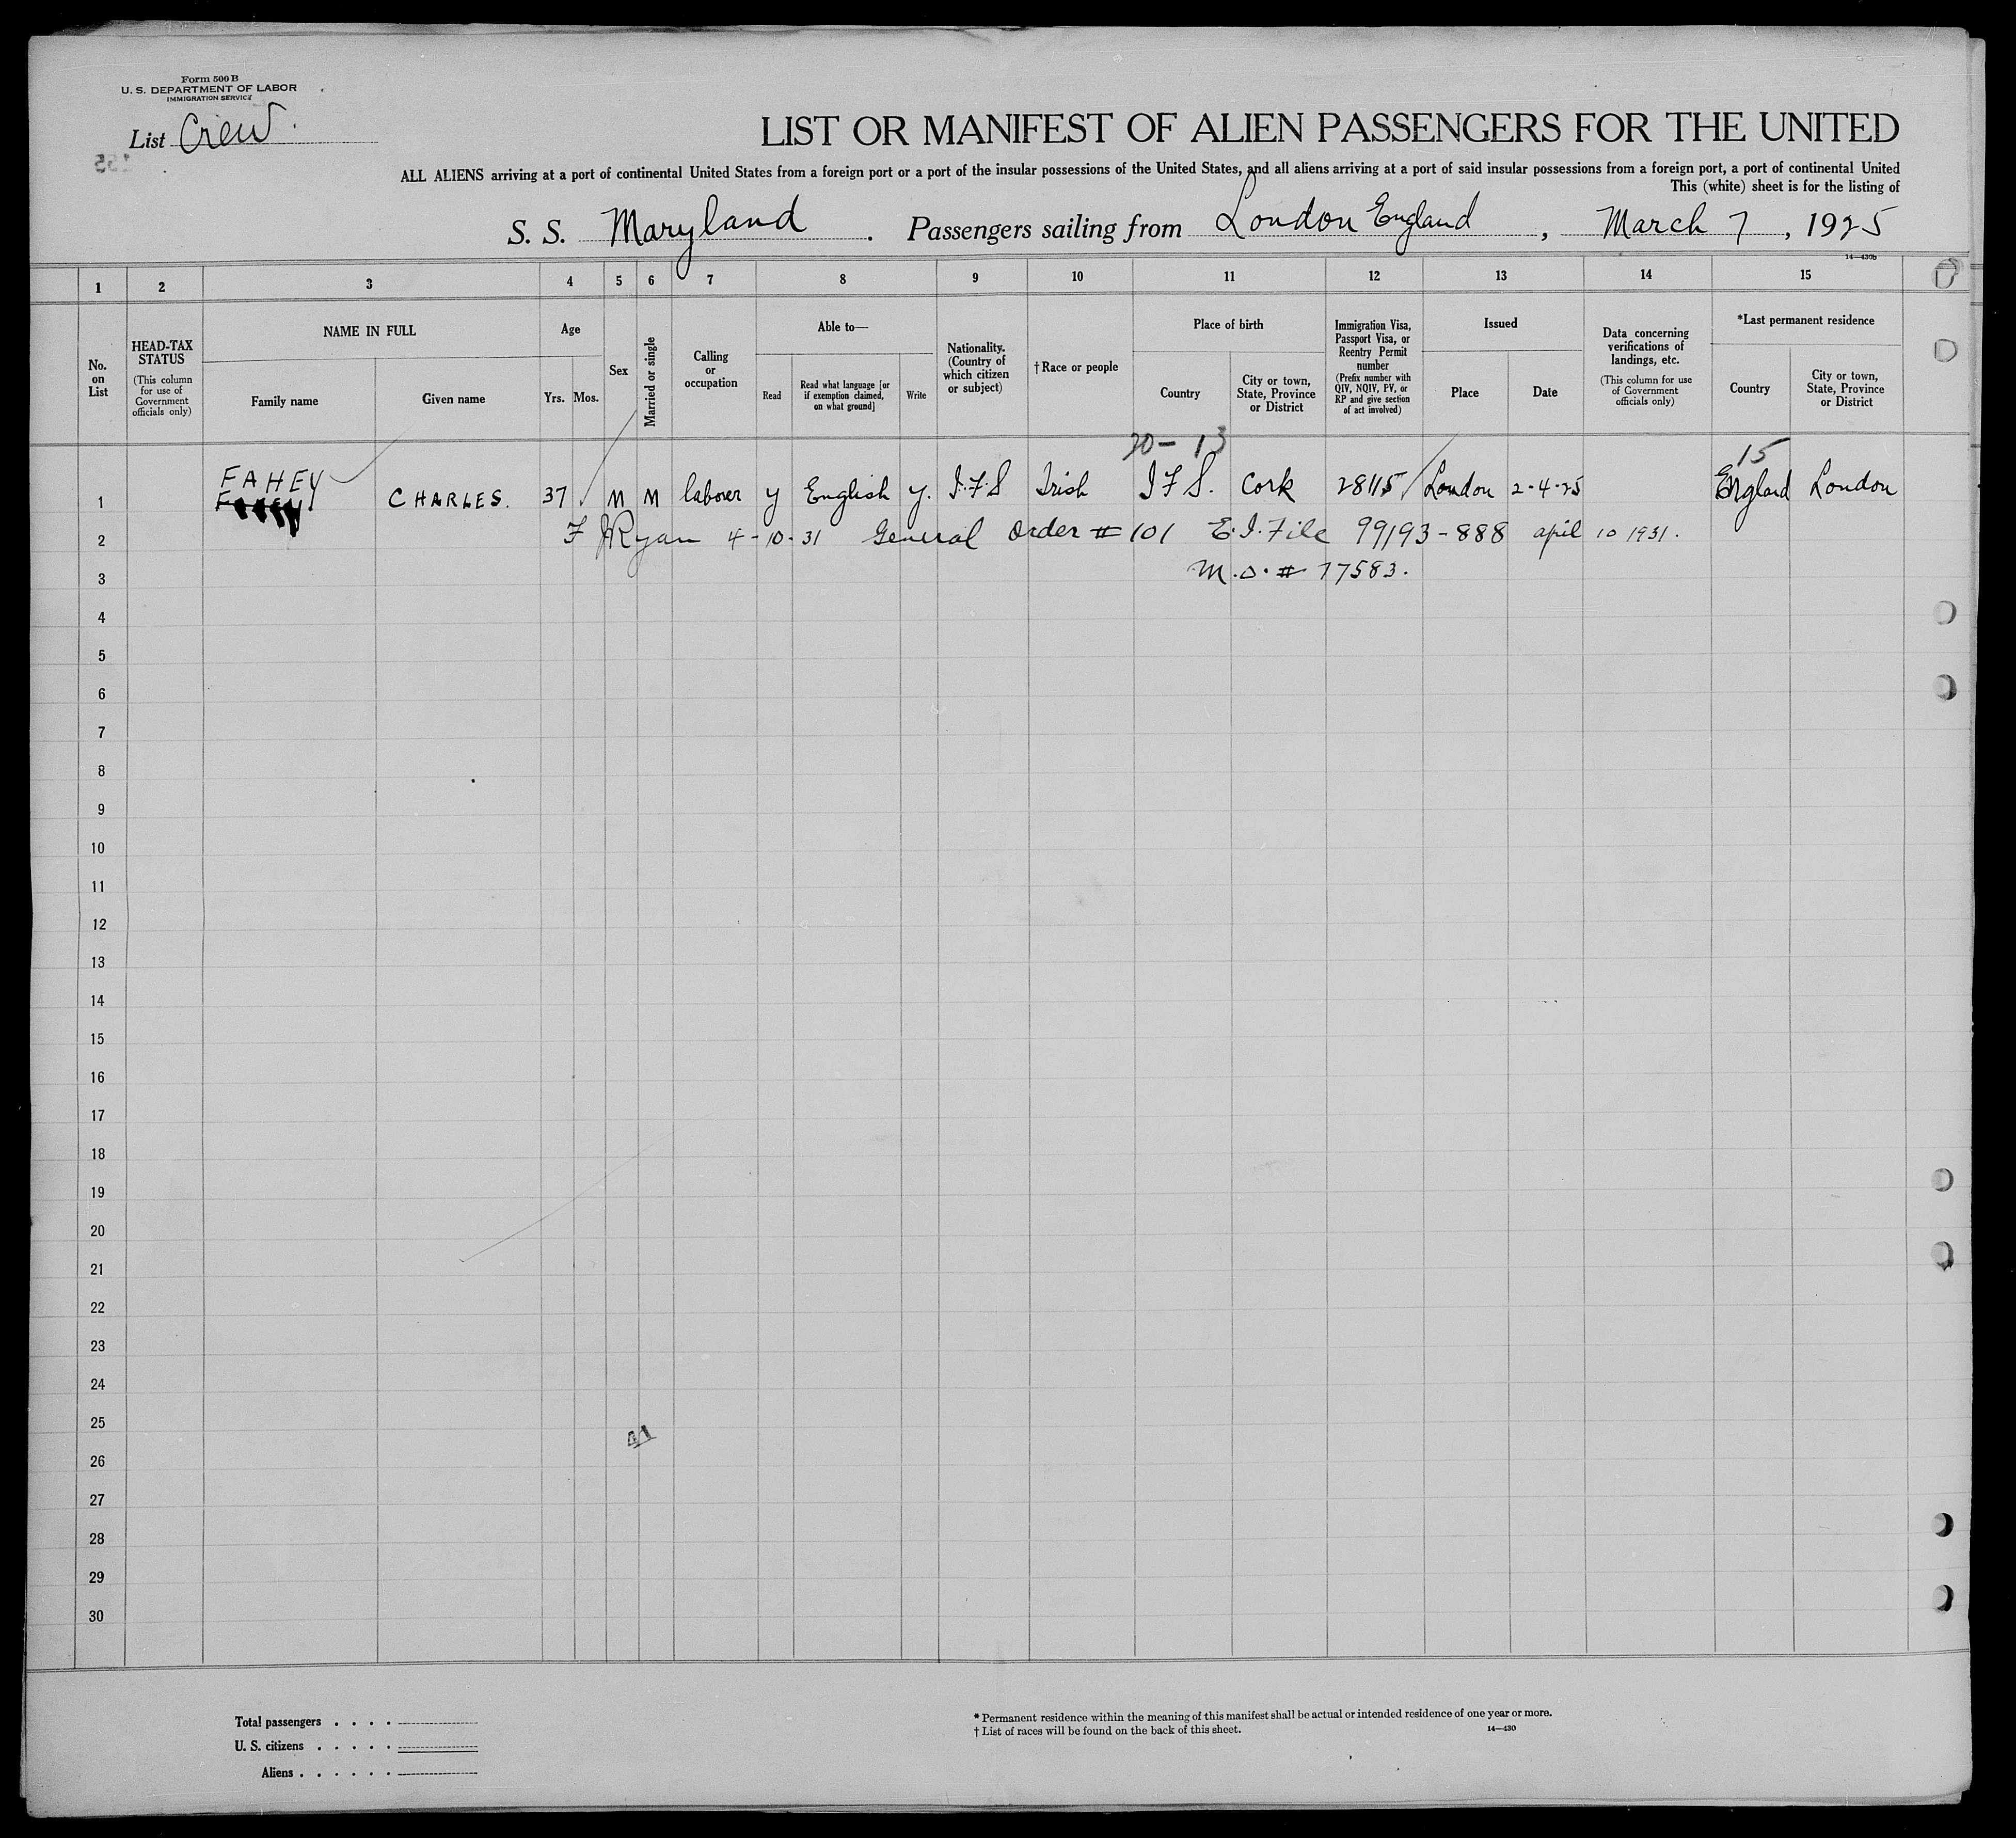 Form 500 B
U. S. DEPARTMENT OF LABOR
IMMIGRATION SERVICE
List Crew.
LIST OR MANIFEST OF ALIEN PASSENGERS FOR THE UNITED
ALL ALIENS arriving at a port of continental United States from a foreign port or a port of the insular possessions of the United States, and all aliens arriving at a port of said insular possessions from a foreign port, a port of continental United
This (white) sheet is for the listing of
S. S. Maryland. Passengers sailing from London England, March 7, 1925
14—430b
1 2 3 4 5 6 7 8 9 10 11 12 13 14 15
No. on List
HEAD-TAX STATUS
(This column for use of Government officials only)
NAME IN FULL
Family name
Given name
Age
Yrs. Mos.
Sex
Married or single
Calling or occupation
Able to—
Read
Read what language [or if exemption claimed, on what ground]
Write
Nationality. (Country of which citizen or subject)
† Race or people
Place of birth
Country
City or town, State, Province or District
Immigration Visa, Passport Visa, or Reentry Permit number
(Prefix number with QIV, NQIV, PV, or RP and give section of act involved)
Issued
Place
Date
Data concerning verifications of landings, etc.
(This column for use of Government officials only)
*Last permanent residence
Country
City or town, State, Province or District
20 - 13
15
FAHEY
1 CHARLES. 37 M M laborer y English y. I.F.S Irish I F S. Cork 28115 London 2-4-25 England London
2 F J Ryan 4-10-31 General Order # 101 E.I. File 99193-888 april 10 1931.
3 M.O. # 77583.
4
5
6
7
8
9
10
11
12
13
14
15
16
17
18
19
20
21
22
23
24
25
26
27
28
29
30
Total passengers . . . .
U. S. citizens . . . . .
Aliens . . . . . .
* Permanent residence within the meaning of this manifest shall be actual or intended residence of one year or more.
† List of races will be found on the back of this sheet.
14—430